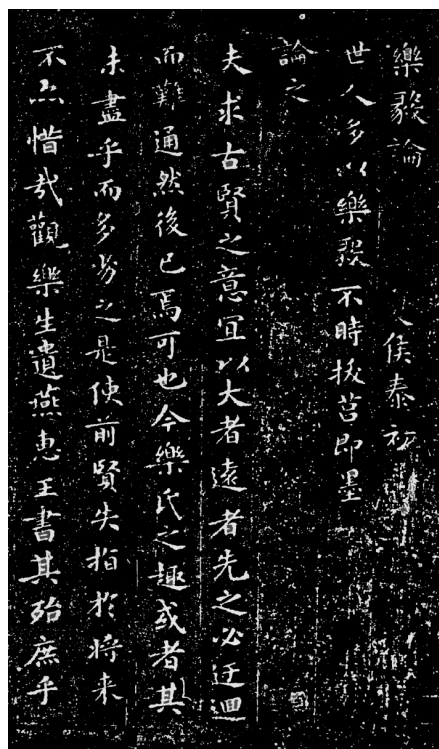 樂毅論 侯泰初
世人多以樂毅不時拔莒即墨
論之
夫求古賢之意宜以大者遠者先之必迂迴
而難通然後已焉可也今樂氏之趣或者其
未盡乎而多劣之是使前賢失指於將来
不亦惜哉觀樂生遺燕惠王書其殆庶乎